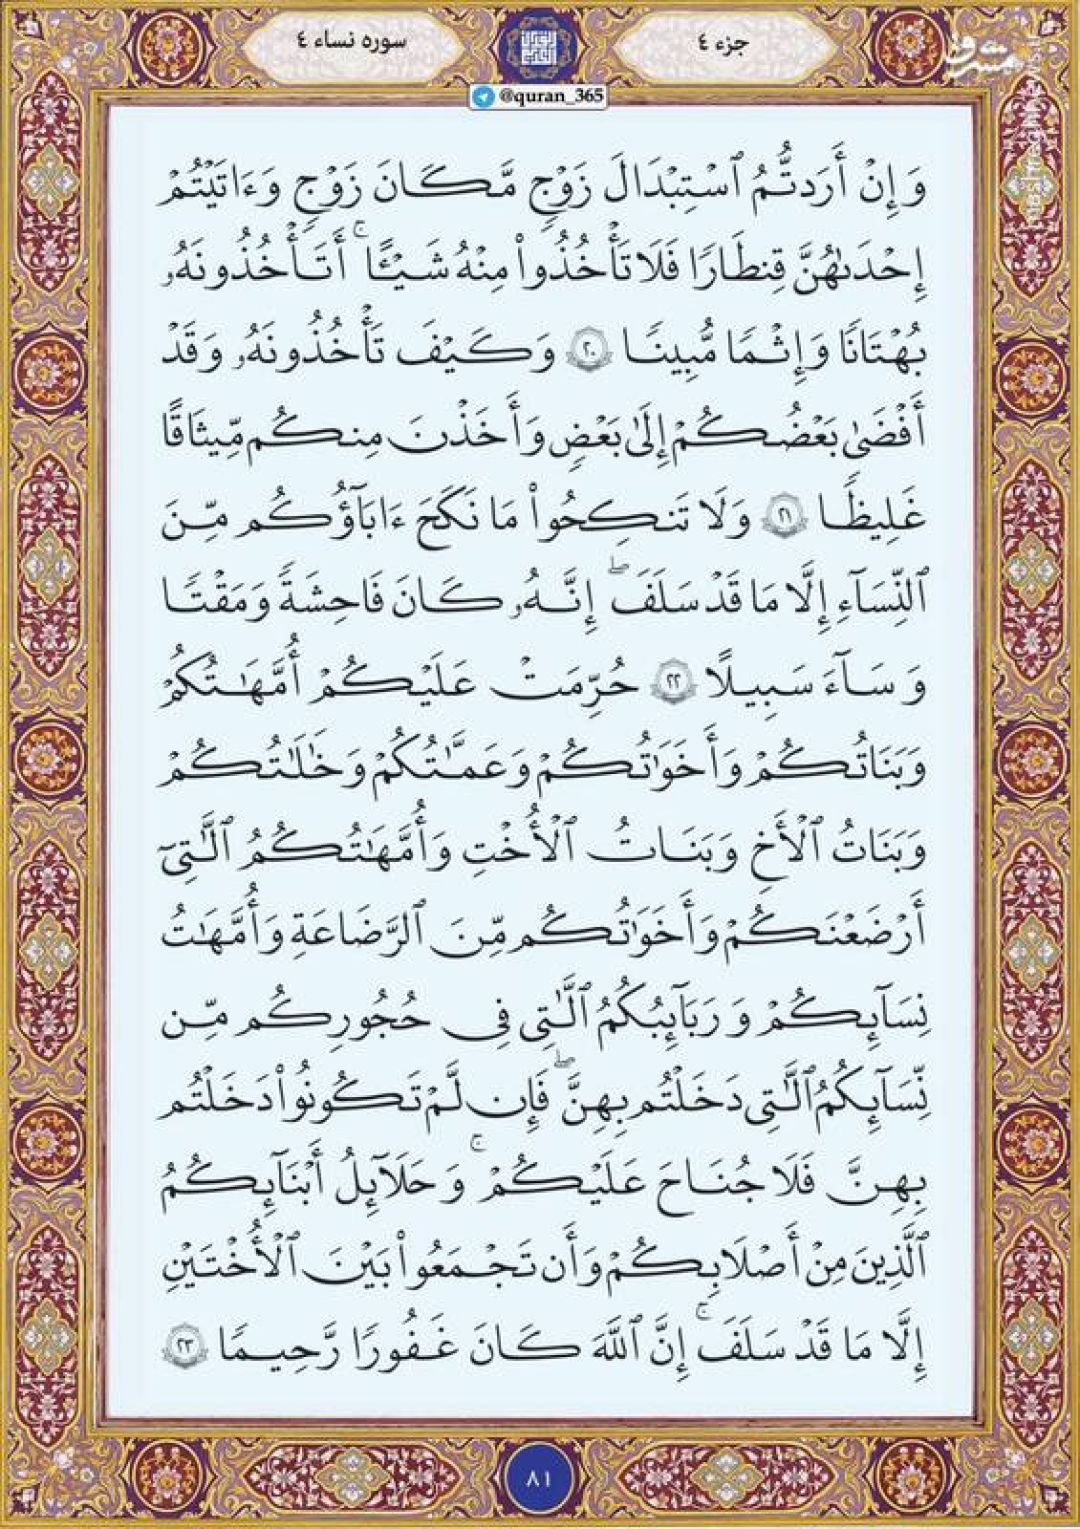 جزء ٤
سوره نساء ٤
مشرق
@quran_365
وَإِنْ أَرَدتُّمُ ٱسْتِبْدَالَ زَوْجٍ مَّكَانَ زَوْجٍ وَءَاتَيْتُمْ
إِحْدَىٰهُنَّ قِنطَارًا فَلَا تَأْخُذُوا۟ مِنْهُ شَيْـًٔا ۚ أَتَأْخُذُونَهُۥ
بُهْتَانًا وَإِثْمًا مُّبِينًا ٢٠ وَكَيْفَ تَأْخُذُونَهُۥ وَقَدْ
أَفْضَىٰ بَعْضُكُمْ إِلَىٰ بَعْضٍ وَأَخَذْنَ مِنكُم مِّيثَاقًا
غَلِيظًا ٢١ وَلَا تَنكِحُوا۟ مَا نَكَحَ ءَابَآؤُكُم مِّنَ
ٱلنِّسَآءِ إِلَّا مَا قَدْ سَلَفَ ۖ إِنَّهُۥ كَانَ فَاحِشَةً وَمَقْتًا
وَسَآءَ سَبِيلًا ٢٢ حُرِّمَتْ عَلَيْكُمْ أُمَّهَـٰتُكُمْ
وَبَنَاتُكُمْ وَأَخَوَٰتُكُمْ وَعَمَّـٰتُكُمْ وَخَـٰلَـٰتُكُمْ
وَبَنَاتُ ٱلْأَخِ وَبَنَاتُ ٱلْأُخْتِ وَأُمَّهَـٰتُكُمُ ٱلَّـٰتِىٓ
أَرْضَعْنَكُمْ وَأَخَوَٰتُكُم مِّنَ ٱلرَّضَاعَةِ وَأُمَّهَـٰتُ
نِسَآئِكُمْ وَرَبَـٰٓئِبُكُمُ ٱلَّـٰتِى فِى حُجُورِكُم مِّن
نِّسَآئِكُمُ ٱلَّـٰتِى دَخَلْتُم بِهِنَّ ۖ فَإِن لَّمْ تَكُونُوا۟ دَخَلْتُم
بِهِنَّ فَلَا جُنَاحَ عَلَيْكُمْ ۚ وَحَلَـٰٓئِلُ أَبْنَآئِكُمُ
ٱلَّذِينَ مِنْ أَصْلَـٰبِكُمْ وَأَن تَجْمَعُوا۟ بَيْنَ ٱلْأُخْتَيْنِ
إِلَّا مَا قَدْ سَلَفَ ۚ إِنَّ ٱللَّهَ كَانَ غَفُورًا رَّحِيمًا ٢٣
٨١